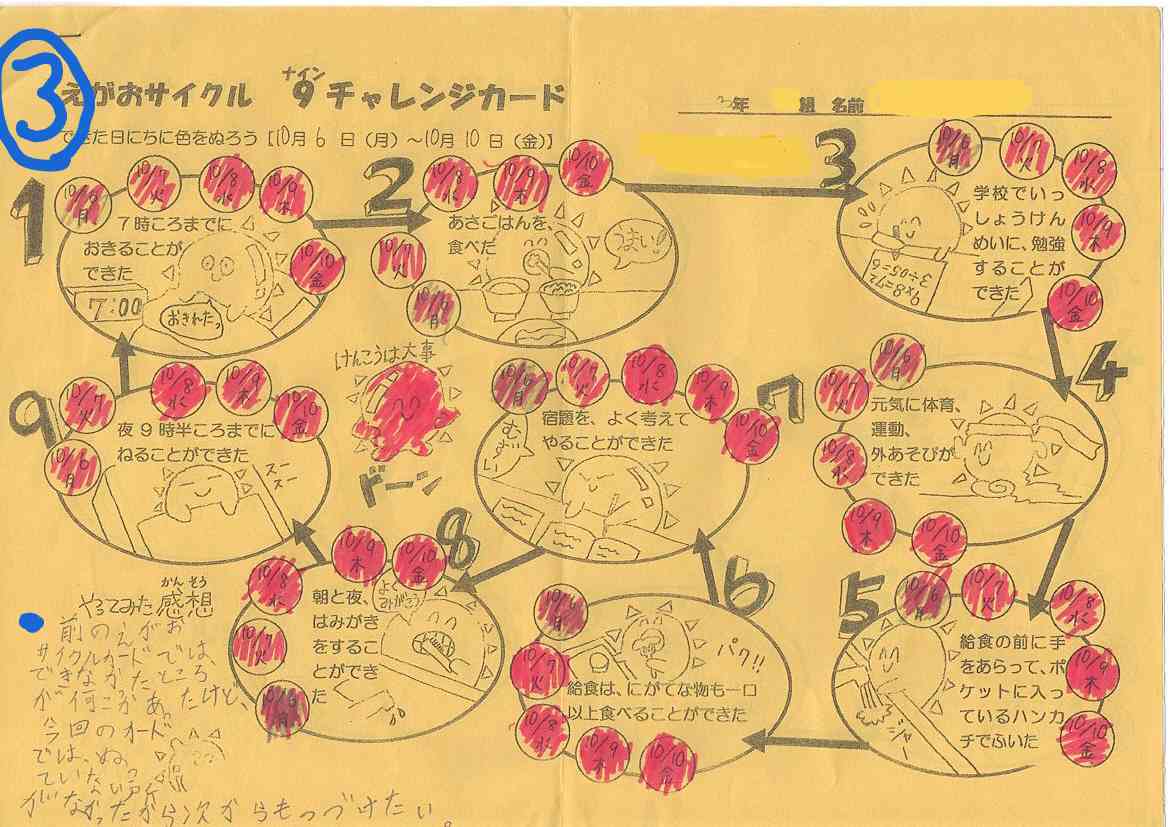 ③
えがおサイクル 9チャレンジカード
ナイン
3年 組 名前
できた日にちに色をぬろう【10月 6 日(月)～10月 10 日(金)】
1
10/6 月
10/7 火
10/8 水
10/9 木
10/10 金
7時ころまでに
おきることが
できた
7:00
おきれたっ
2
10/6 月
10/7 火
10/8 水
10/9 木
10/10 金
あさごはんを、
食べた
うまい!!
3
10/6 月
10/7 火
10/8 水
10/9 木
10/10 金
学校でいっ
しょうけん
めいに、勉強
することが
できた
9×8=72
4
10/6 月
10/7 火
10/8 水
10/9 木
10/10 金
元気に体育、
運動、
外あそびが
できた
5
10/6 月
10/7 火
10/8 水
10/9 木
10/10 金
給食の前に手
をあらって、ポ
ケットに入っ
ているハンカ
チでふいた
ジャー
6
10/6 月
10/7 火
10/8 水
10/9 木
10/10 金
パク!!
給食は、にがてな物も一口
以上食べることができた
7
10/6 月
10/7 火
10/8 水
10/9 木
10/10 金
宿題を、よく考えて
やることができた
むずい
8
10/6 月
10/7 火
10/8 水
10/9 木
10/10 金
朝と夜、
はみがき
をするこ
とができ
た
よくみがこう!
9
10/6 月
10/7 火
10/8 水
10/9 木
10/10 金
夜9時半ころまでに
ねることができた
スースー
けんこうは大事
ドーン
やってみた感想
かんそう
前のえがお
サイクルカードでは、
できなかたところ
が何こかあったけど、
今回のカード
では、ぬっ
ていない所
がなかったから次からもつづけたい。